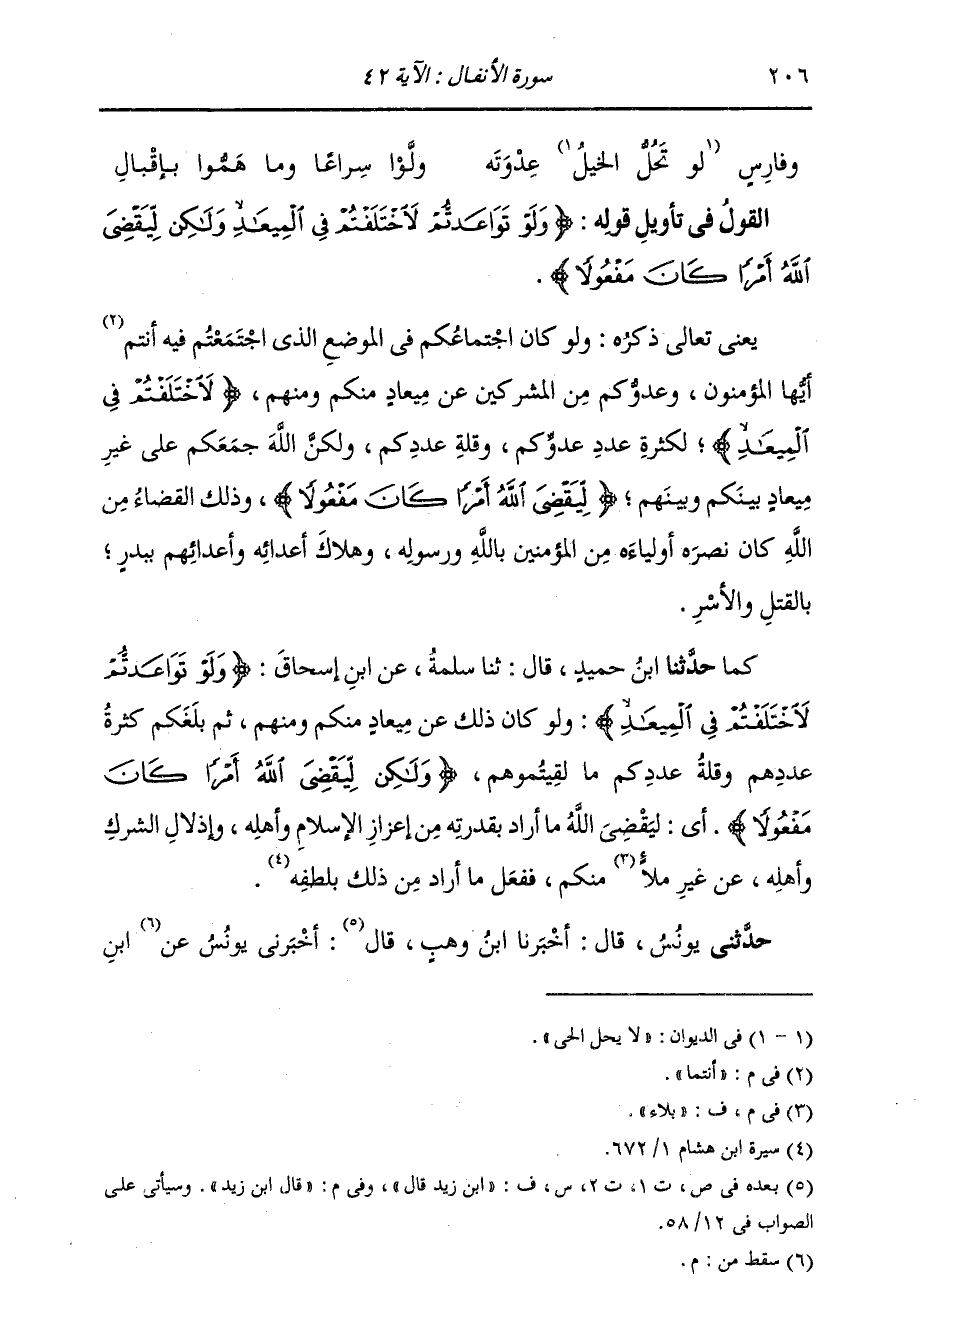 ٢٠٦ سورة الأنفال : الآية ٤٢
وفارِسٍ (١لو تَحُلُّ الخيلُ١) عِدْوَتَه ولَّوْا سِراعًا وما هَمُّوا بإقْبالِ
القولُ فى تأويلِ قولِه : ﴿ وَلَوْ تَوَاعَدتُّمْ لَٱخْتَلَفْتُمْ فِى ٱلْمِيعَٰدِۙ وَلَٰكِن لِّيَقْضِىَ
ٱللَّهُ أَمْرًا كَانَ مَفْعُولًا ﴾ .
يعنى تعالى ذكرُه : ولو كان اجْتماعُكم فى الموضعِ الذى اجْتَمَعْتُم فيه أنتم(٢)
أيُّها المؤمنون ، وعدوُّكم مِن المشركين عن مِيعادٍ منكم ومنهم ، ﴿ لَٱخْتَلَفْتُمْ فِى
ٱلْمِيعَٰدِۙ ﴾ ؛ لكثرةِ عددِ عدوِّكم ، وقلةِ عددِكم ، ولكنَّ اللَّهَ جمَعَكم على غيرِ
مِيعادٍ بينَكم وبينَهم ؛ ﴿ لِّيَقْضِىَ ٱللَّهُ أَمْرًا كَانَ مَفْعُولًا ﴾ ، وذلك القضاءُ مِن
اللَّهِ كان نصرَه أولياءَه مِن المؤمنين باللَّهِ ورسولِه ، وهلاكَ أعدائِه وأعدائِهم ببدرٍ ؛
بالقتلِ والأسْرِ .
كما حدَّثنا ابنُ حميدٍ ، قال : ثنا سلمةُ ، عن ابنِ إسحاقَ : ﴿ وَلَوْ تَوَاعَدتُّمْ
لَٱخْتَلَفْتُمْ فِى ٱلْمِيعَٰدِۙ ﴾ : ولو كان ذلك عن مِيعادٍ منكم ومنهم ، ثم بلَغَكم كثرةُ
عددِهم وقلةُ عددِكم ما لقِيتُموهم ، ﴿ وَلَٰكِن لِّيَقْضِىَ ٱللَّهُ أَمْرًا كَانَ
مَفْعُولًا ﴾ . أى : ليَقْضِىَ اللَّهُ ما أراد بقدرتِه مِن إعزازِ الإسلامِ وأهلِه ، وإذلالِ الشركِ
وأهلِه ، عن غيرِ ملأٍ(٣) منكم ، ففعَل ما أراد مِن ذلك بلطفِه(٤) .
حدَّثنى يونُسُ ، قال : أخْبَرنا ابنُ وهبٍ ، قال(٥) : أخْبَرنى يونُسُ عن(٦) ابنِ
(١ - ١) فى الديوان : « لا يحل الحى » .
(٢) فى م : « أنتما » .
(٣) فى م ، ف : « بلاء » .
(٤) سيرة ابن هشام ١/ ٦٧٢.
(٥) بعده فى ص ، ت ١، ت ٢، س ، ف : « ابن زيد قال » ، وفى م : « قال ابن زيد » . وسيأتى على
الصواب فى ١٢/ ٥٨.
(٦) سقط من : م .